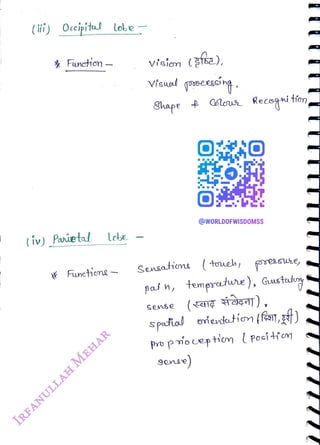 (iii) Occipital lobe –
* Function – Vision (दृष्टि),
Visual processing,
Shape & Colour Recognition
@WORLDOFWISDOMSS
(iv) Parietal lobe –
* Functions – Sensations (touch, pressure,
pain, temprature), Gustatory
sense (स्वाद संवेदना),
spatial orientation (दिशा, दूरी)
proprioception (Position
sense)
IRFANULLAH MEHAR